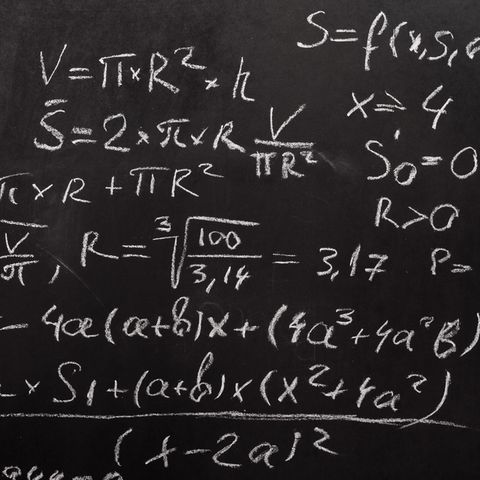 S=f(x,s,
V=π×R²×h
x⩾4
S̄=2×π×R V/πR²
S'₀=0
π×R+πR²
R>0
V/π, R=∛(100/3,14)=3,17
P=
-4a(a+b)x+(4a³+4a²b)
×S₁+(a+b)×(x²+4a²)
(x-2a)²